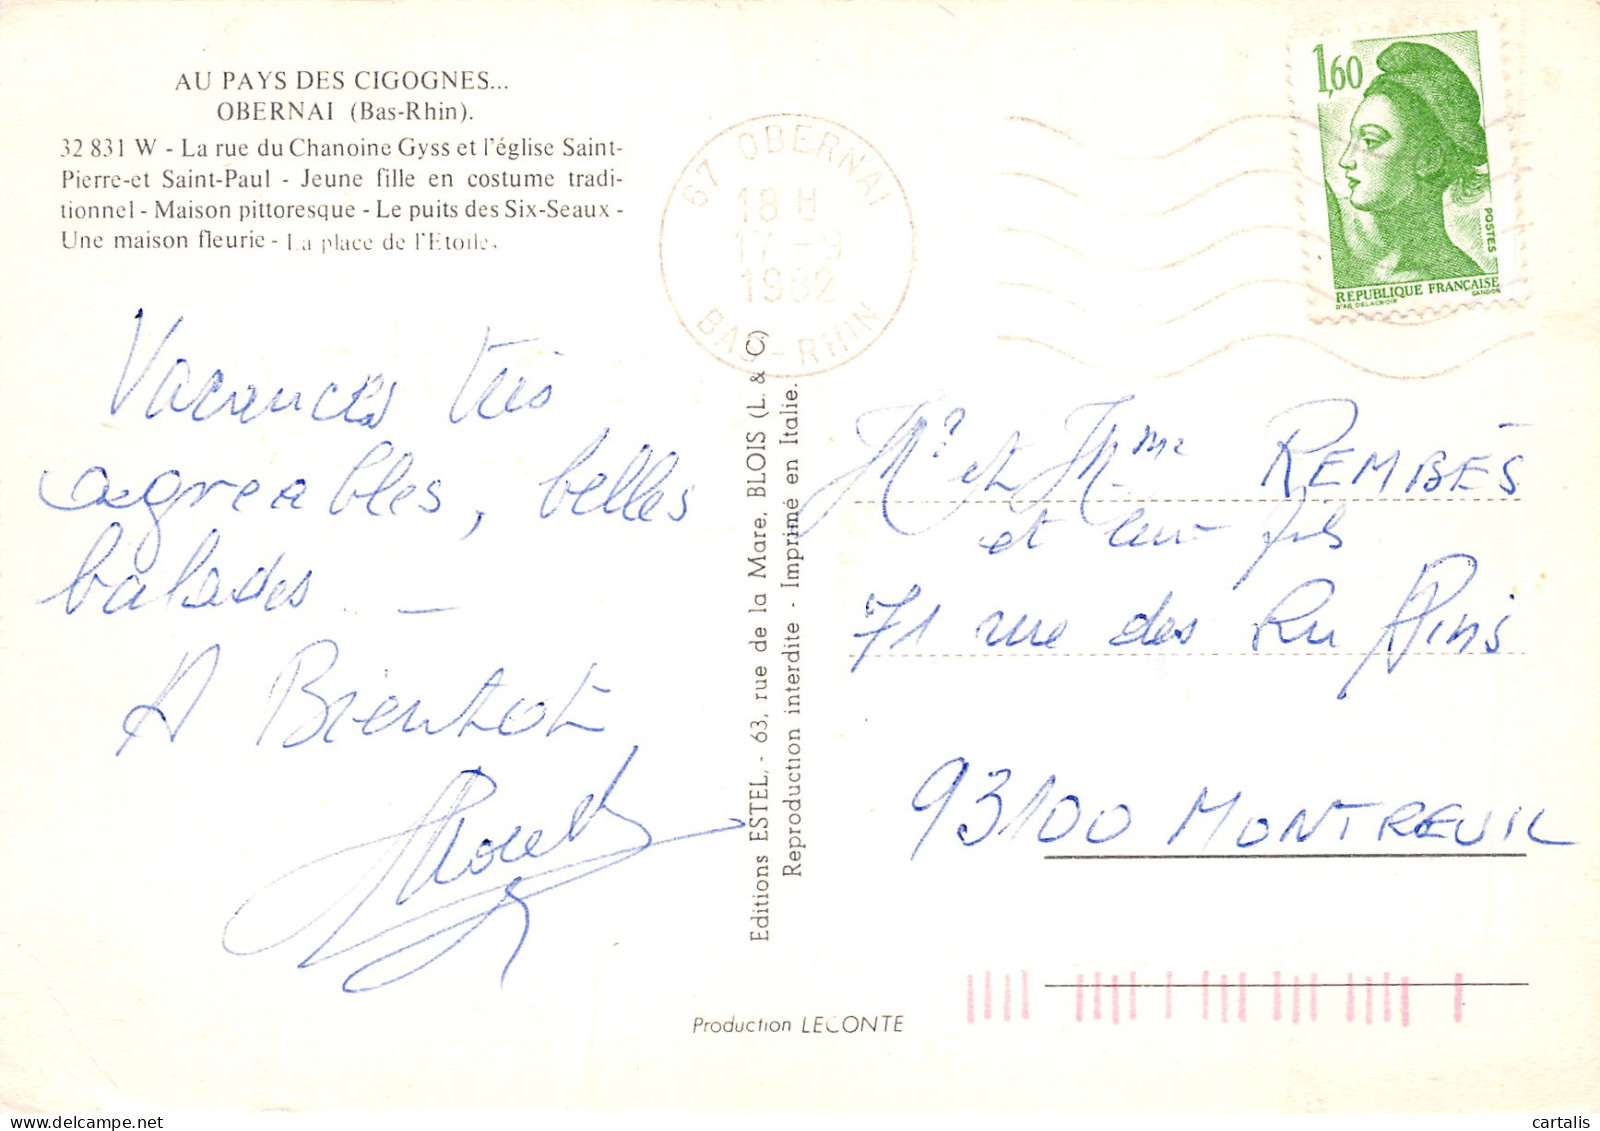 AU PAYS DES CIGOGNES...
OBERNAI (Bas-Rhin).
32 831 W - La rue du Chanoine Gyss et l'église Saint-
Pierre-et Saint-Paul - Jeune fille en costume tradi-
tionnel - Maison pittoresque - Le puits des Six-Seaux -
Une maison fleurie - La place de l'Etoile.
67 OBERNAI
18 H
17 - 9
1982
BAS-RHIN
1,60
POSTES
REPUBLIQUE FRANÇAISE
D'AP. DELACROIX
GANDON
Vacances très
agreables, belles
balades _
A Bientot
Editions ESTEL, - 63, rue de la Mare, BLOIS (L. & C)
Reproduction interdite - Imprimé en Italie.
Mr et Mme REMBES
et leur fils
71 rue des Ru
93100 MONTREUIL
Production LECONTE
cartalis